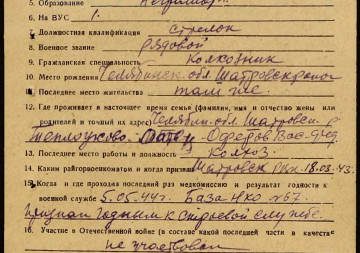 5. Образование
6. На ВУС 1.
7. Должностная квалификация стрелок
8. Военное звание рядовой
9. Гражданская специальность Колхозник
10. Место рождения Челябинск. обл. Шатровск
11. Последнее место жительства там же.
12. Где проживает в настоящее время семья (фамилия, имя и отчество жены или
родителей и точный их адрес) Челябин. обл. Шатровск р
13. Последнее место работы и должность Колхоз.
14. Каким райгорвоенкоматом и когда призван Шатровск РВК 18.03.43.
15. Когда и где проходил последний раз медкомиссию и результат годности к
военной службе 5.05.44г. База НКО №67.
признан годным к строевой службе.
16. Участие в Отечественной войне (в составе какой последней части в качестве
не участвовал